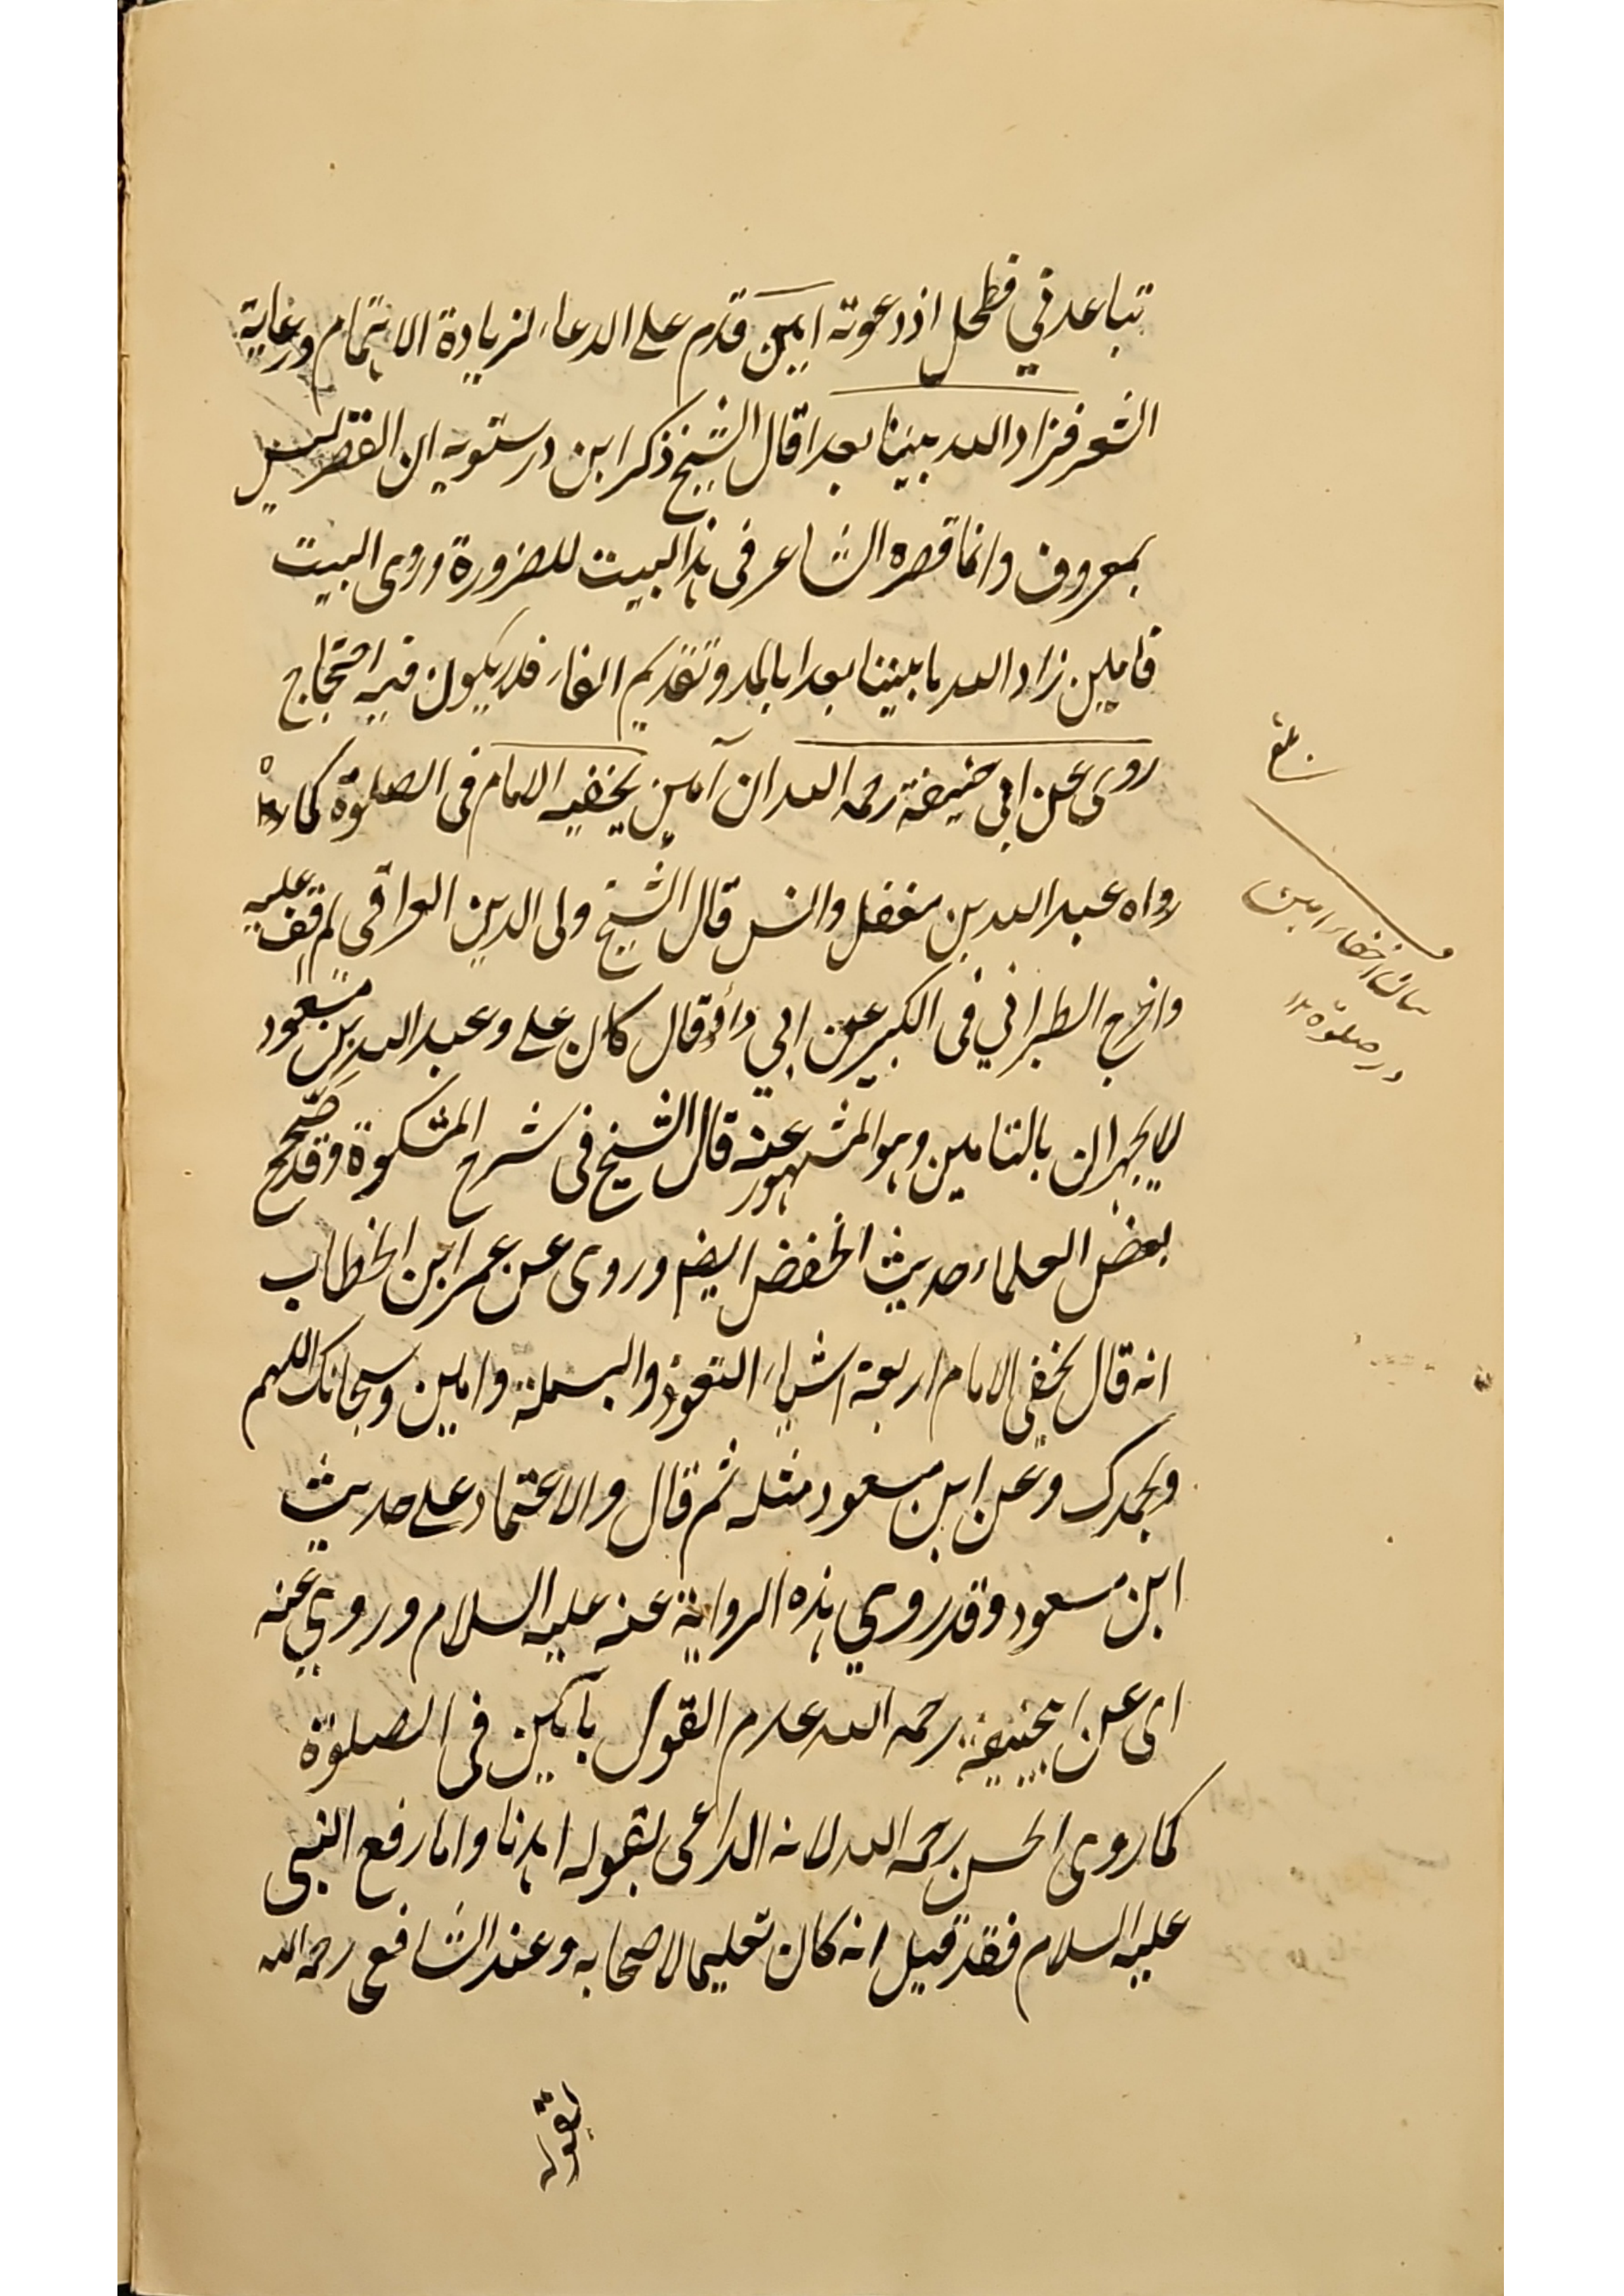 تباعد في فطحل اذ دعوته امين قدم على الدعاء لزيادة الاهتمام ورعاية
الشعر فزاد الله بيننا بعدا قال الشيخ ذكر ابن درستويه ان القصر ليس
بمعروف وانما قصره الشاعر فى هذا البيت للضرورة وروى البيت
فامين زاد الله ما بيننا بعدا بالمد وتقديم الفاء فلا يكون فيه احتجاج
روى عن ابي حنيفة رحمه الله ان آمين يخفيه الامام فى الصلوة كما
رواه عبد الله بن مغفل وانس قال الشيخ ولى الدين العراقى لم اقف عليه
واخرج الطبراني فى الكبير عن ابي وائل قال كان على وعبد الله بن مسعود
لا يجهران بالتامين وهو المشهور عنه قال الشيخ فى شرح المشكوة وقد صحح
بعض العلماء حديث الخفض ايضا وروى عن عمر ابن الخطاب
انه قال يخفى الامام اربعة اشياء التعوذ والبسملة وامين وسبحانك اللهم
وبحمدك وعن ابن مسعود مثله ثم قال والاعتماد على حديث
ابن مسعود وقد روي هذه الرواية عنه عليه السلام وروي عنه
اى عن ابيحنيفة رحمه الله عدم القول بآمين فى الصلوة
كما روى الحسن رحمه الله لانه الداعى بقوله اهدنا واما رفع النبى
عليه السلام فقد قيل انه كان تعليما لاصحابه وعند الشافعى رحمه الله
بقوله
بيان اخفاء امين
در صلوة ١٢